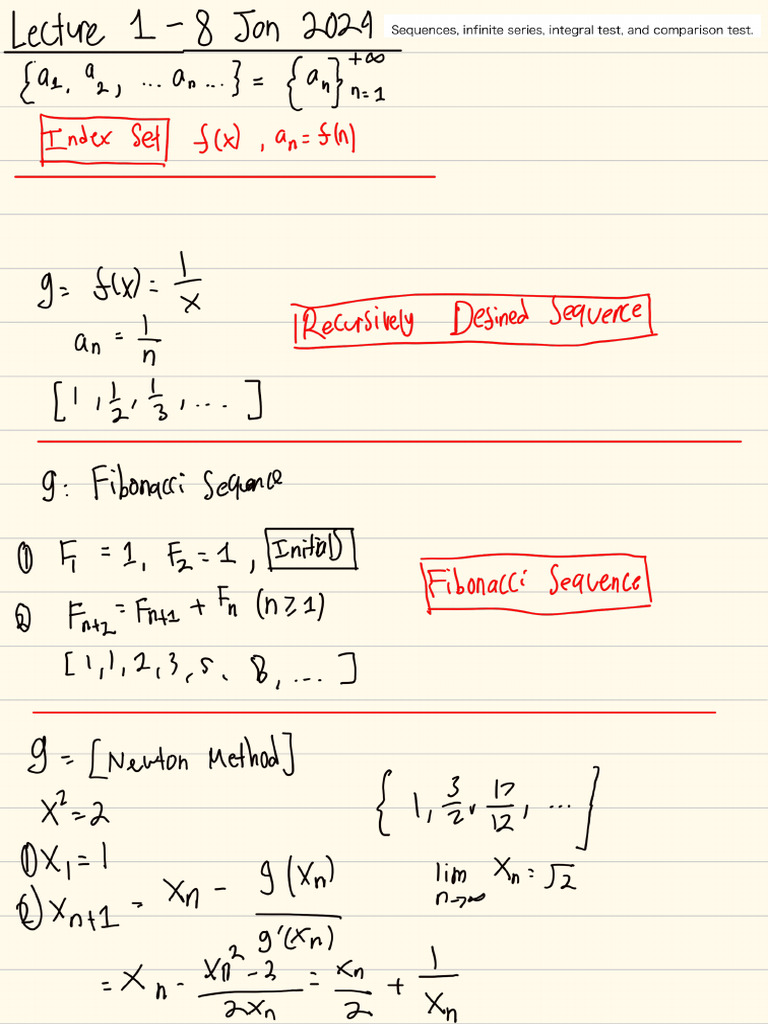 Lecture 1 - 8 Jan 2024
Sequences, infinite series, integral test, and comparison test.
{a₁, a₂, ... aₙ ...} = {aₙ}ₙ₌₁^+∞
Index Set f(x), aₙ = f(n)
g = f(x) = 1/x
aₙ = 1/n
[1, 1/2, 1/3, ... ]
Recursively Defined Sequence
g: Fibonacci Sequence
① F₁ = 1, F₂ = 1, Initial
② Fₙ₊₂ = Fₙ₊₁ + Fₙ (n ≥ 1)
[1, 1, 2, 3, 5, 8, ... ]
Fibonacci Sequence
g = [Newton Method]
x² = 2
① x₁ = 1
② xₙ₊₁ = xₙ - g(xₙ)/g'(xₙ)
= xₙ - (xₙ² - 2)/2xₙ = xₙ/2 + 1/xₙ
{1, 3/2, 17/12, ... }
lim n→∞ xₙ = √2